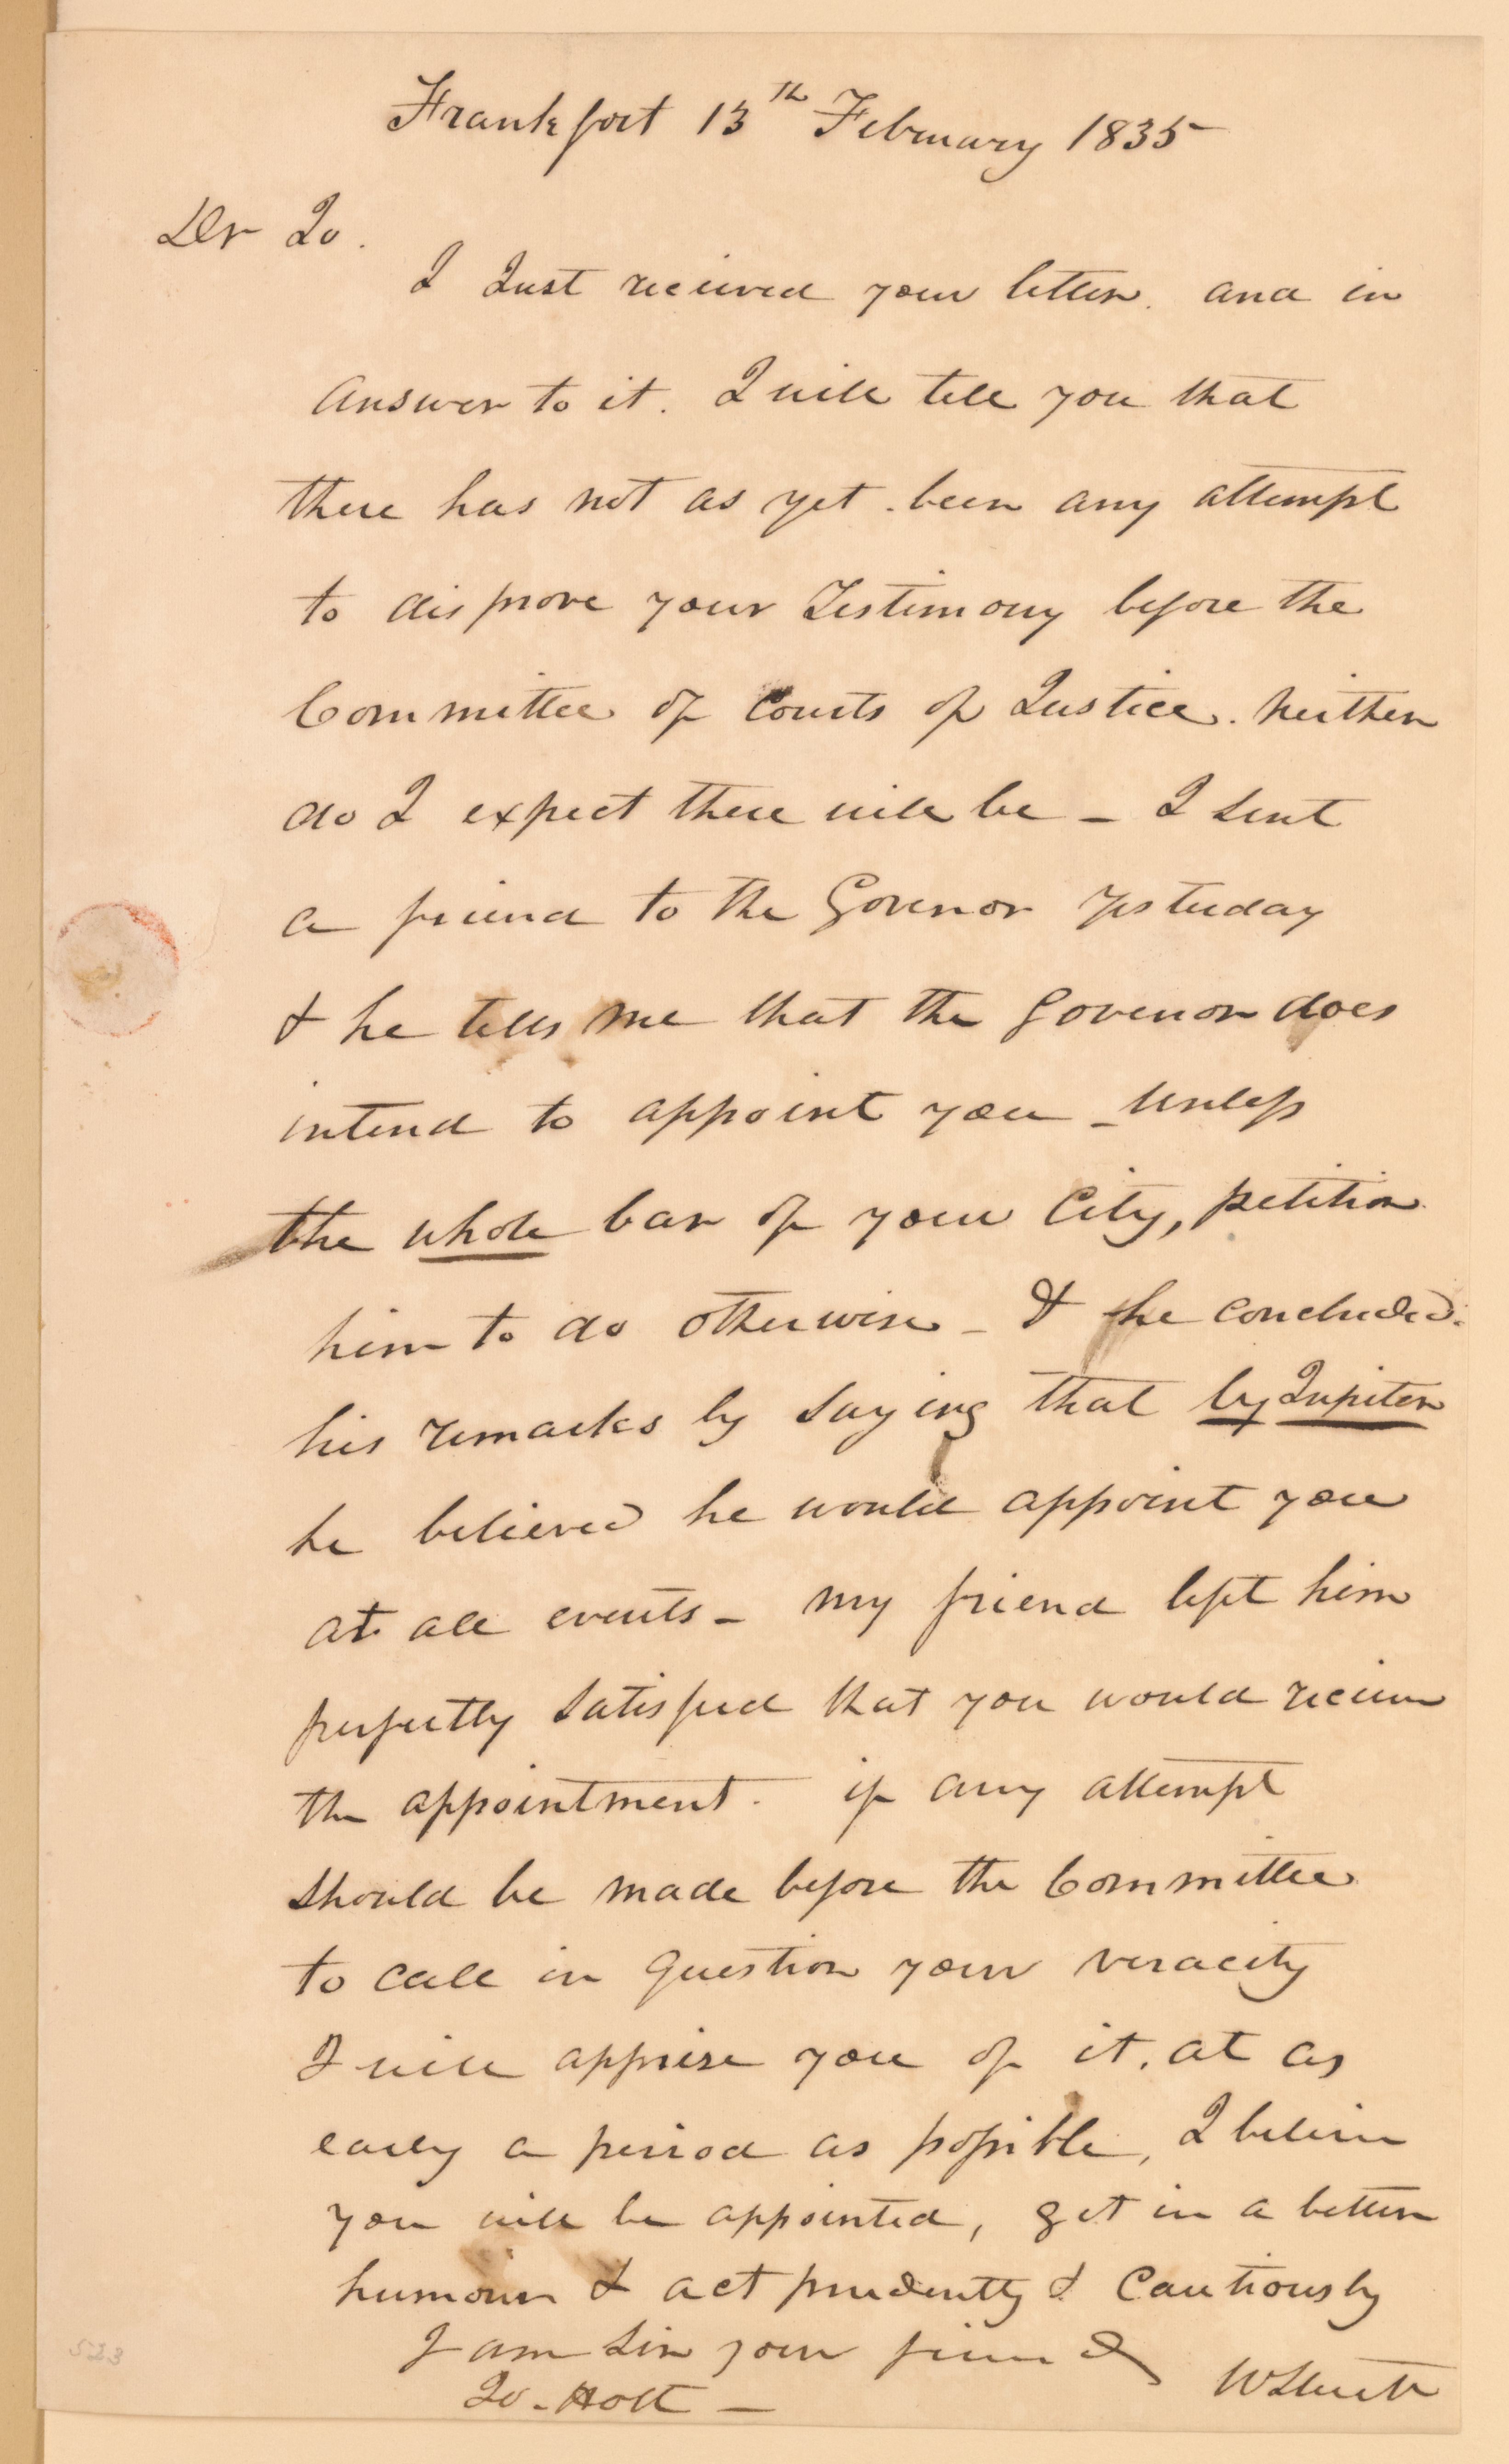 Frankfort 13th February 1835
Dr Jo.
I Just recieved your letter. and in
answer to it. I will tell you that
there has not as yet been any attempt
to disprove your Testimony before the
Committee of Courts of Justice. neither
do I expect there will be _ I sent
a friend to the Govenor yesterday
& he tells me that the Govenor does
intend to appoint you _ unless
the whole bar of your City, petition
him to do otherwise _ & he concluded
his remarks by saying that by Jupiter
he believed he would appoint you
at all events _ my friend left him
perfectly satisfied that you would recieve
the appointment. if any attempt
should be made before the Committee
to call in question your veracity
I will apprise you of it, at as
early a period as possible, I believe
you will be appointed, get in a better
humour & act prudently & Cautiously
I am Sir your friend
Jo. Holt _
523